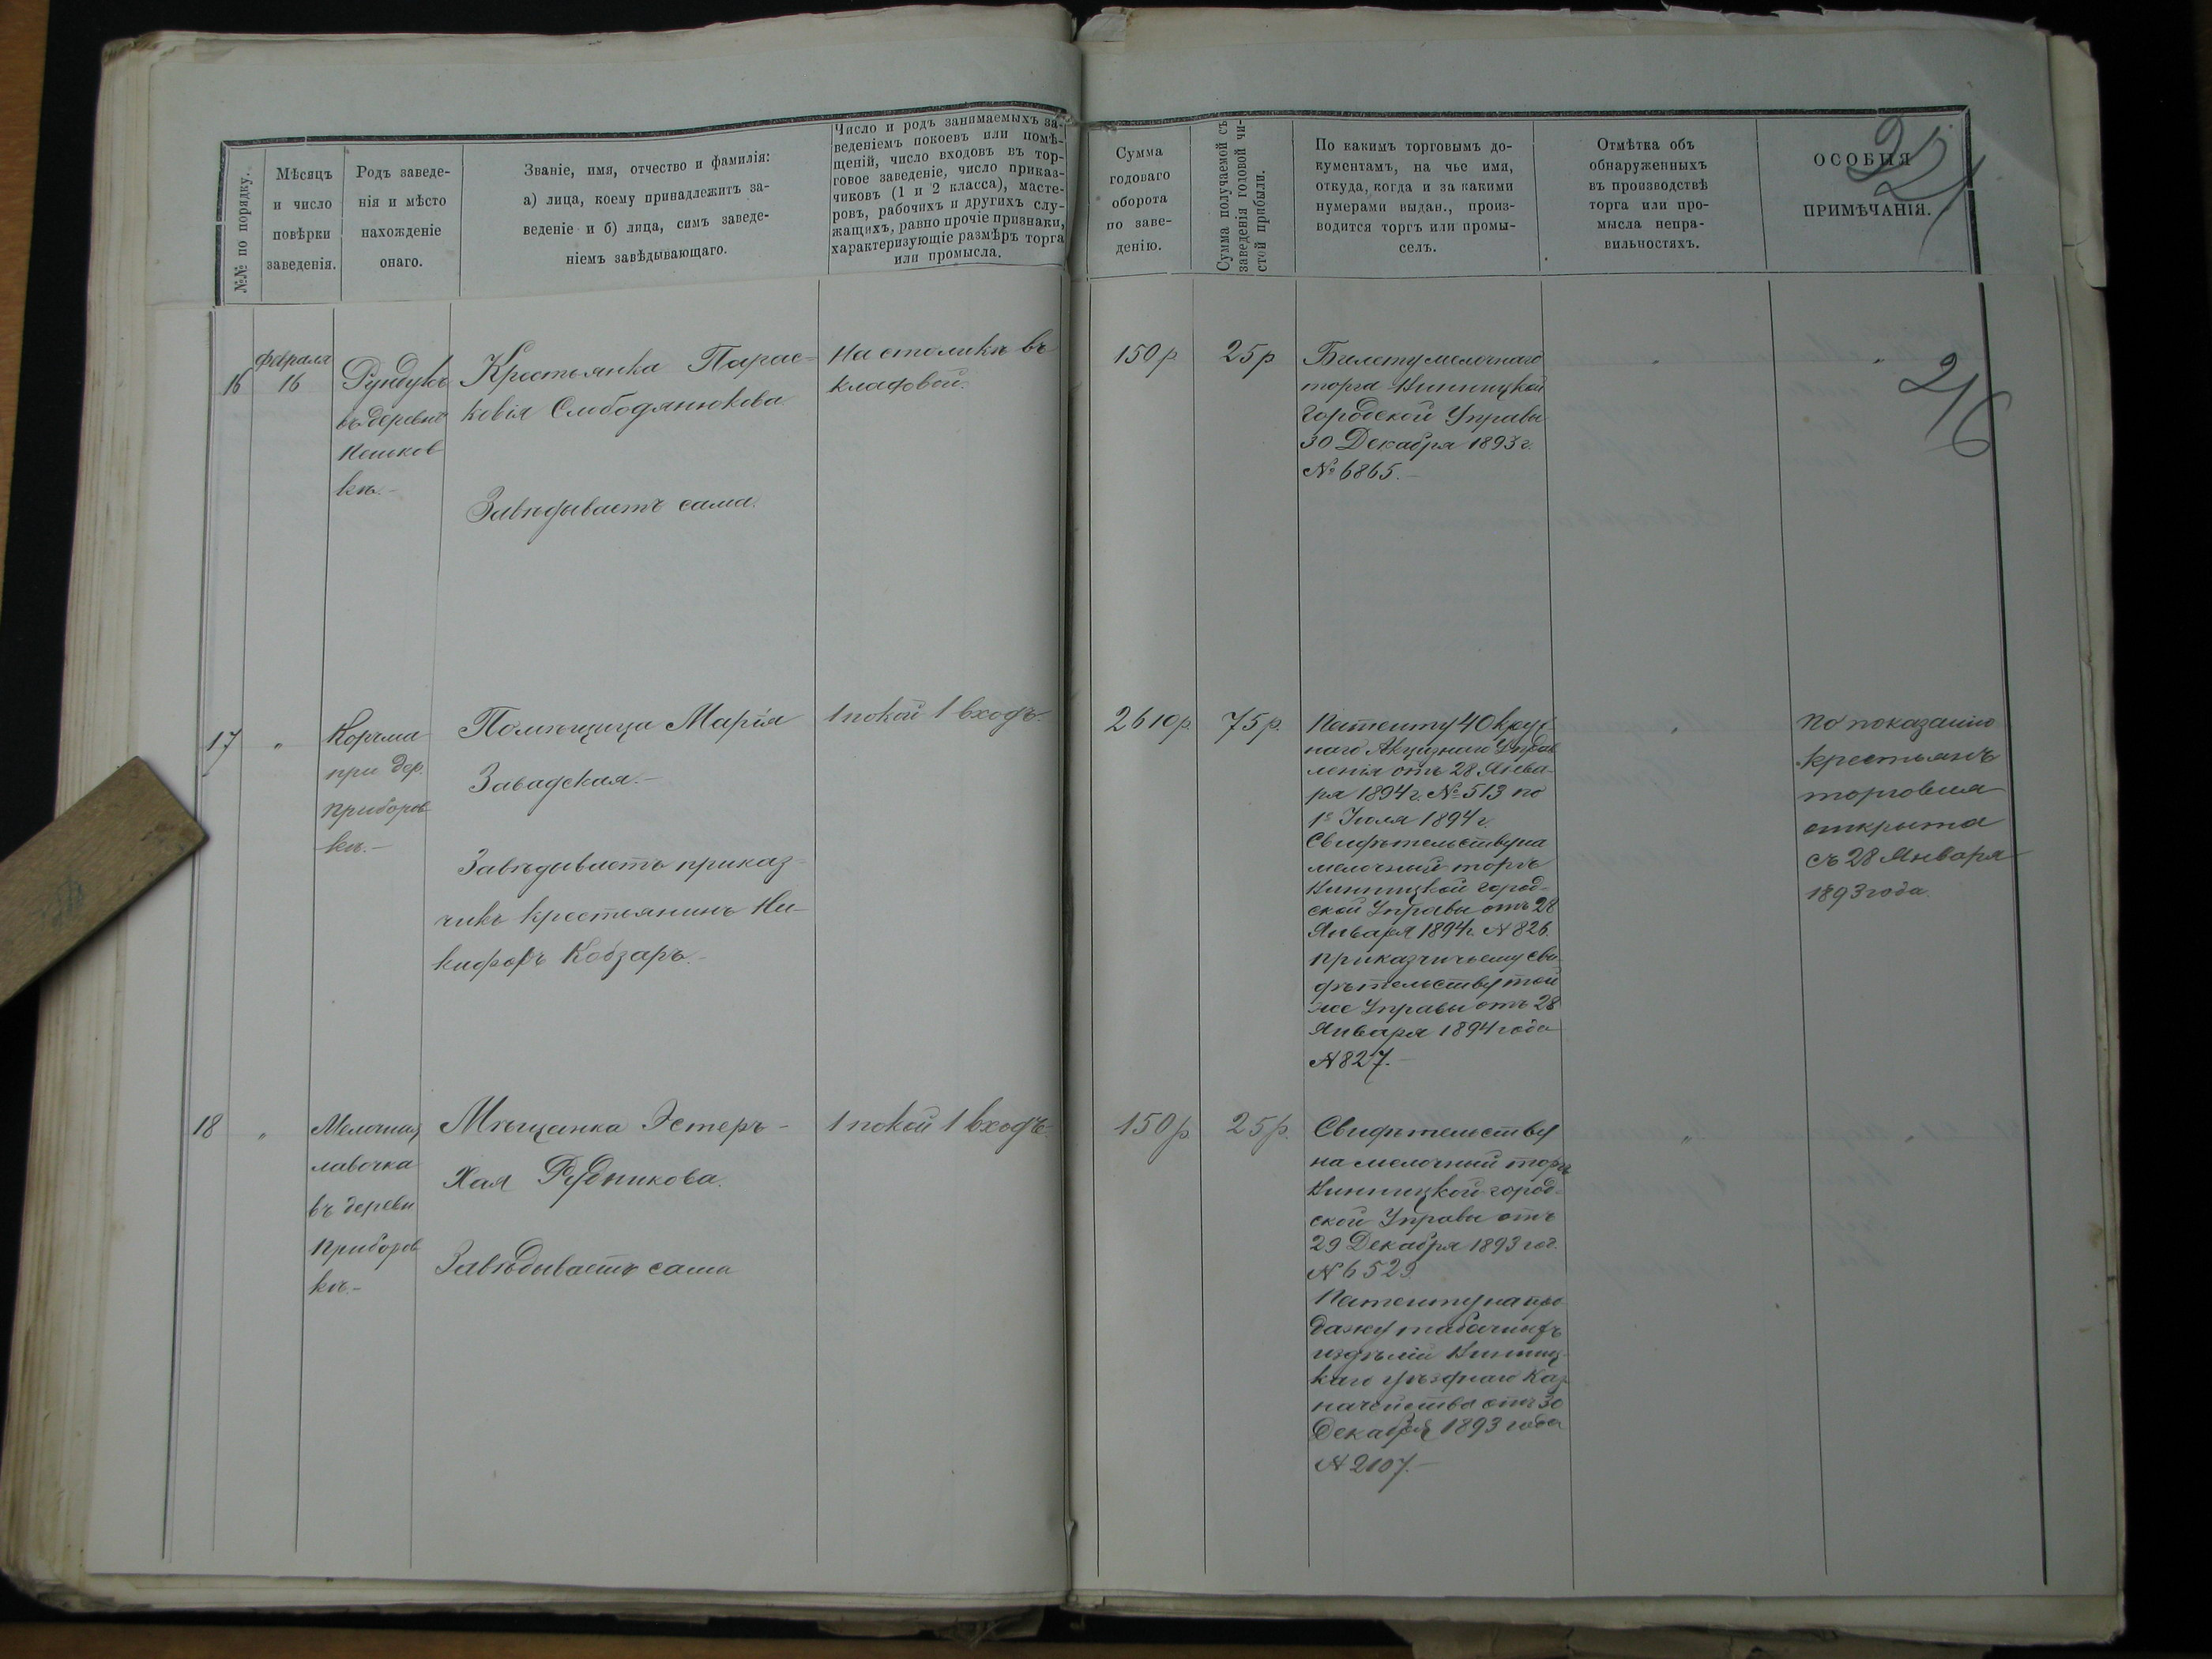 №№ по порядку.
Мѣсяцъ
и число
повѣрки
заведенія.
Родъ заведе-
нія и мѣсто
нахожденіе
онаго.
Званіе, имя, отчество и фамилія:
а) лица, коему принадлежитъ за-
веденіе и б) лица, симъ заведе-
ніемъ завѣдывающаго.
Число и родъ занимаемыхъ за-
веденіемъ покоевъ или помѣ-
щеній, число входовъ въ тор-
говое заведеніе, число приказ-
чиковъ (1 и 2 класса), масте-
ровъ, рабочихъ и другихъ слу-
жащихъ, равно прочіе признаки,
характеризующіе размѣръ торга
или промысла.
Сумма
годоваго
оборота
по заве-
денію.
Сумма получаемой съ
заведенія годовой чи-
стой прибыли.
По какимъ торговымъ до-
кументамъ, на чье имя,
откуда, когда и за какими
нумерами выдан., произ-
водится торгъ или промы-
селъ.
Отмѣтка объ
обнаруженныхъ
въ производствѣ
торга или про-
мысла непра-
вильностяхъ.
ОСОБЫЯ
ПРИМѢЧАНІЯ.
216
16
Февраля
16
Рундукъ
въ деревнѣ
Пешков
кѣ.-
Крестьянка Парас-
ковія Слободянюкова
Завѣдываетъ сама.
На столикѣ въ
кладовой.
150 р
25 р
Билету мелочнаго
торга Винницкой
Городской Управы
30 Декабря 1893 г.
№ 6865.-
"
"
17
"
Корчма
при дер.
Приборов-
кѣ.-
Помѣщица Марія
Завадская.-
Завѣдываетъ приказ-
чикъ крестьянинъ Ни-
кифоръ Кобзаръ.-
1 покой 1 входъ.
2610 р.
75 р.
Патенту 4 Окруж
наго Акцизнаго Управ
ленія отъ 28 Янва-
ря 1894 г. № 513 по
1е Іюля 1894 г.
Свидѣтельству на
мелочный торгъ
Винницкой город-
ской Управы отъ 28
Января 1894 г. № 826.
приказчичьему сви
дѣтельству той
же Управы отъ 28
Января 1894 года
№ 827.-
"
По показанію
крестьянъ
торговля
открыта
съ 28 Января
1893 года.
18
"
Мелочная
лавочка
въ деревн
Приборов
кѣ.-
Мѣщанка Эстеръ-
Хая Рудникова.
Завѣдываетъ сама
1 покой 1 входъ.
150 р
25 р.
Свидѣтельству
на мелочный торгъ
Винницкой город-
ской Управы отъ
29 Декабря 1893 год.
№ 6529.
Патенту на про
дажу табачныхъ
издѣлій Винниц-
каго уѣзднаго Каз
начейства отъ 30
Декабря 1893 года
№ 2107.-
"